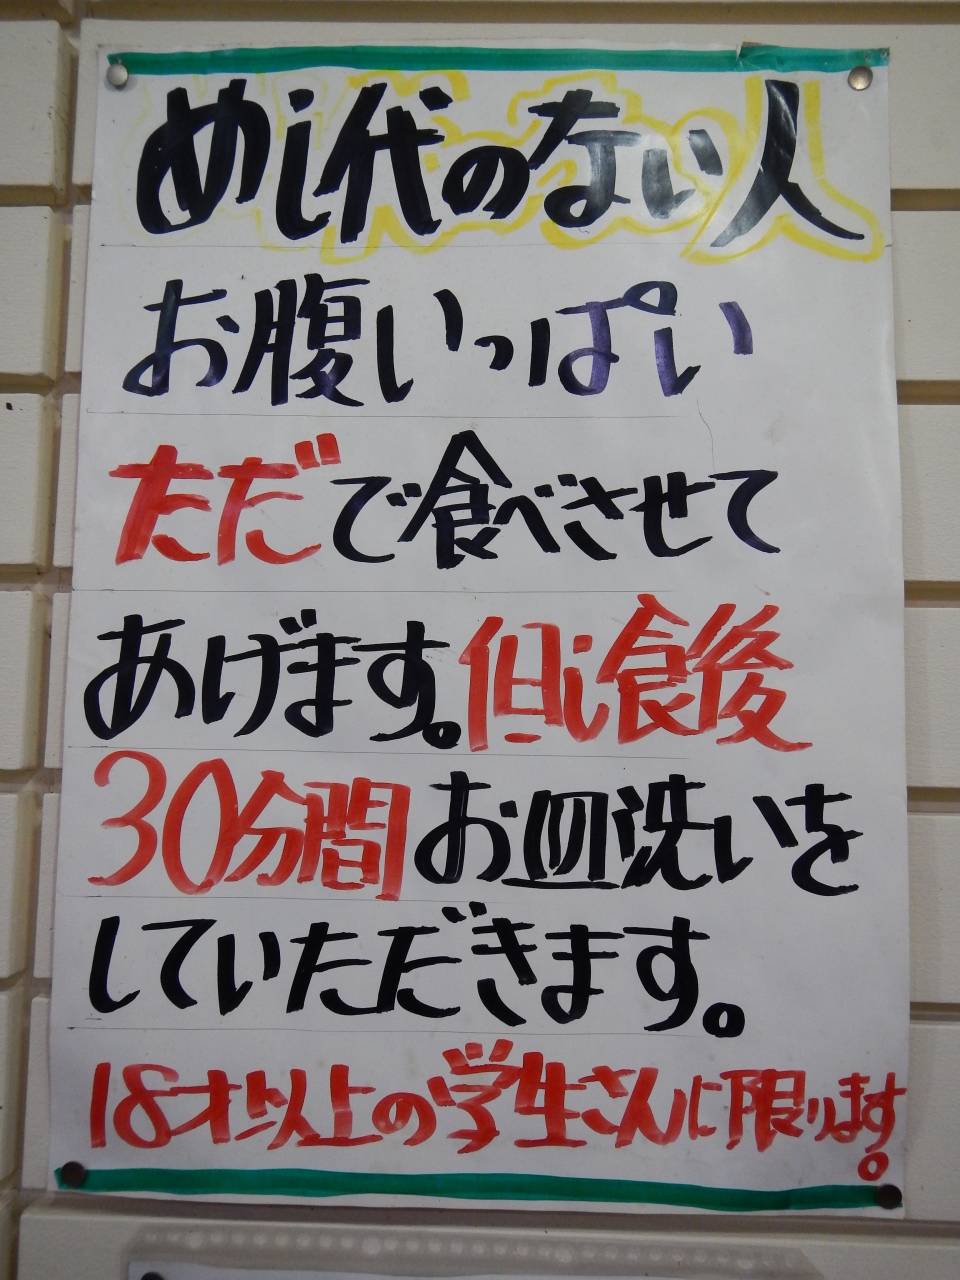 めし代のない人
お腹いっぱい
ただで食べさせて
あげます。但し食後
30分間お皿洗いを
していただきます。
18才以上の学生さんに限ります。